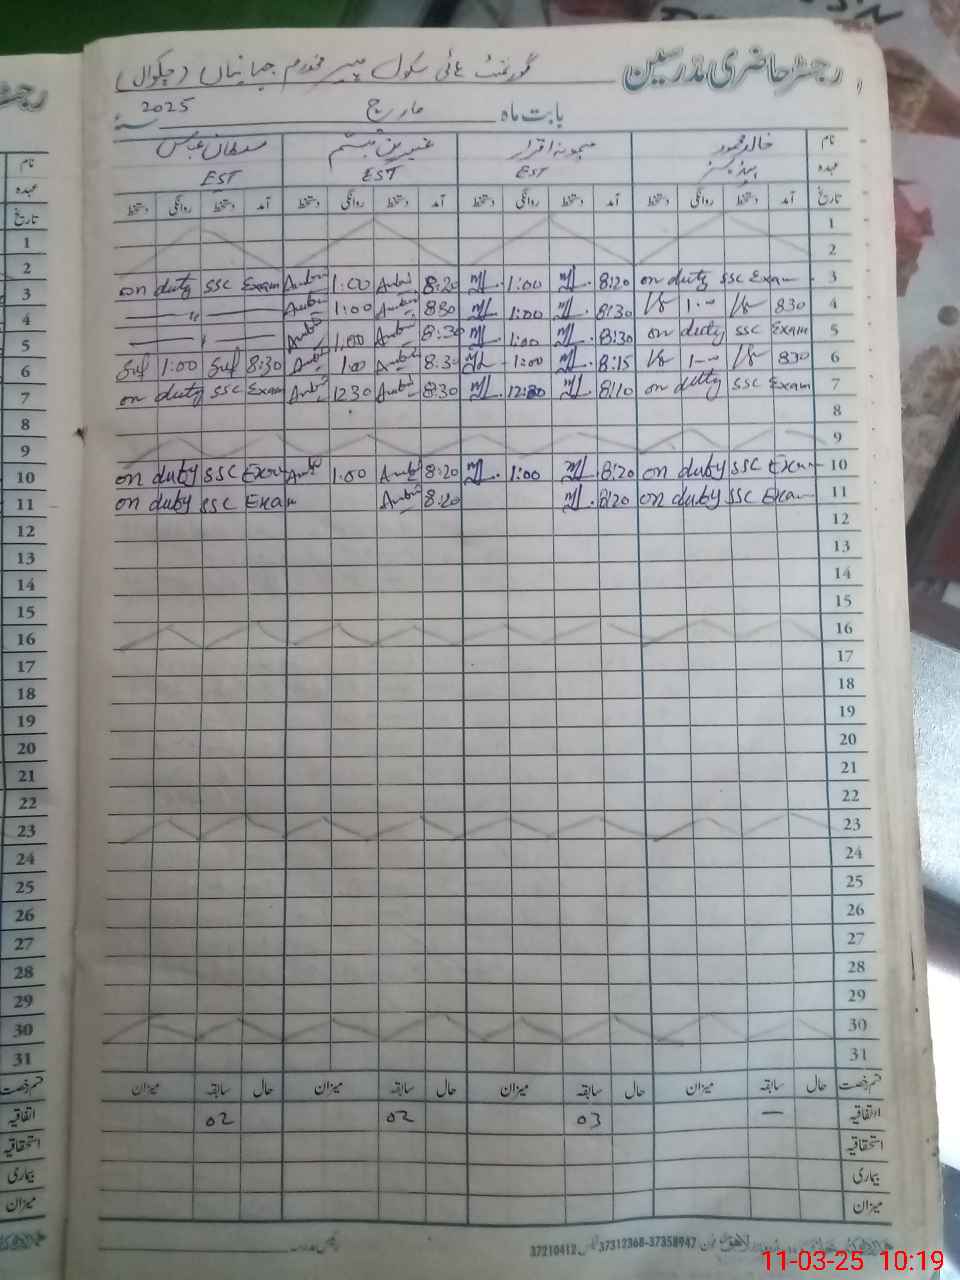 رجسٹر حاضری مدرسین گورنمنٹ ہائی سکول پیر مخدوم جہانیاں (چکوال)
بابت ماہ مارچ 2025 سنہ
نام خالد محمود میمونہ اقرار عنبرین تبسم سلطان عباس نام
عہدہ EST EST EST عہدہ
تاریخ آمد دستخط روانگی دستخط آمد دستخط روانگی دستخط آمد دستخط روانگی دستخط آمد دستخط روانگی دستخط تاریخ
1 1
2 2
on duty SSC Exam 1:00 8:20 1:00 8:20 on duty SSC Exam 3
3
— 〃 — 1:00 8:30 1:00 8:30 1-- 830 4
4
— 〃 — 1:00 8:30 1:00 8:30 on duty SSC Exam 5
5
1:00 8:30 1:00 8:30 1:00 8:15 1-- 830 6
6
on duty SSC Exam 12:30 8:30 12:30 8:10 on duty SSC Exam 7
7
8 8
9 9
10 on duty SSC Exam 1:00 8:20 1:00 8:20 on duty SSC Exam 10
11 on duty SSC Exam 8:20 8:20 on duty SSC Exam 11
12 12
13 13
14 14
15 15
16 16
17 17
18 18
19 19
20 20
21 21
22 22
23 23
24 24
25 25
26 26
27 27
28 28
29 29
30 30
31 31
قسم رخصت حال سابقہ میزان حال سابقہ میزان حال سابقہ میزان حال سابقہ میزان قسم رخصت
اتفاقیہ — 03 02 02 اتفاقیہ
استحقاقیہ استحقاقیہ
بیماری بیماری
میزان میزان
37210412 37312368-37358947
11-03-25 10:19